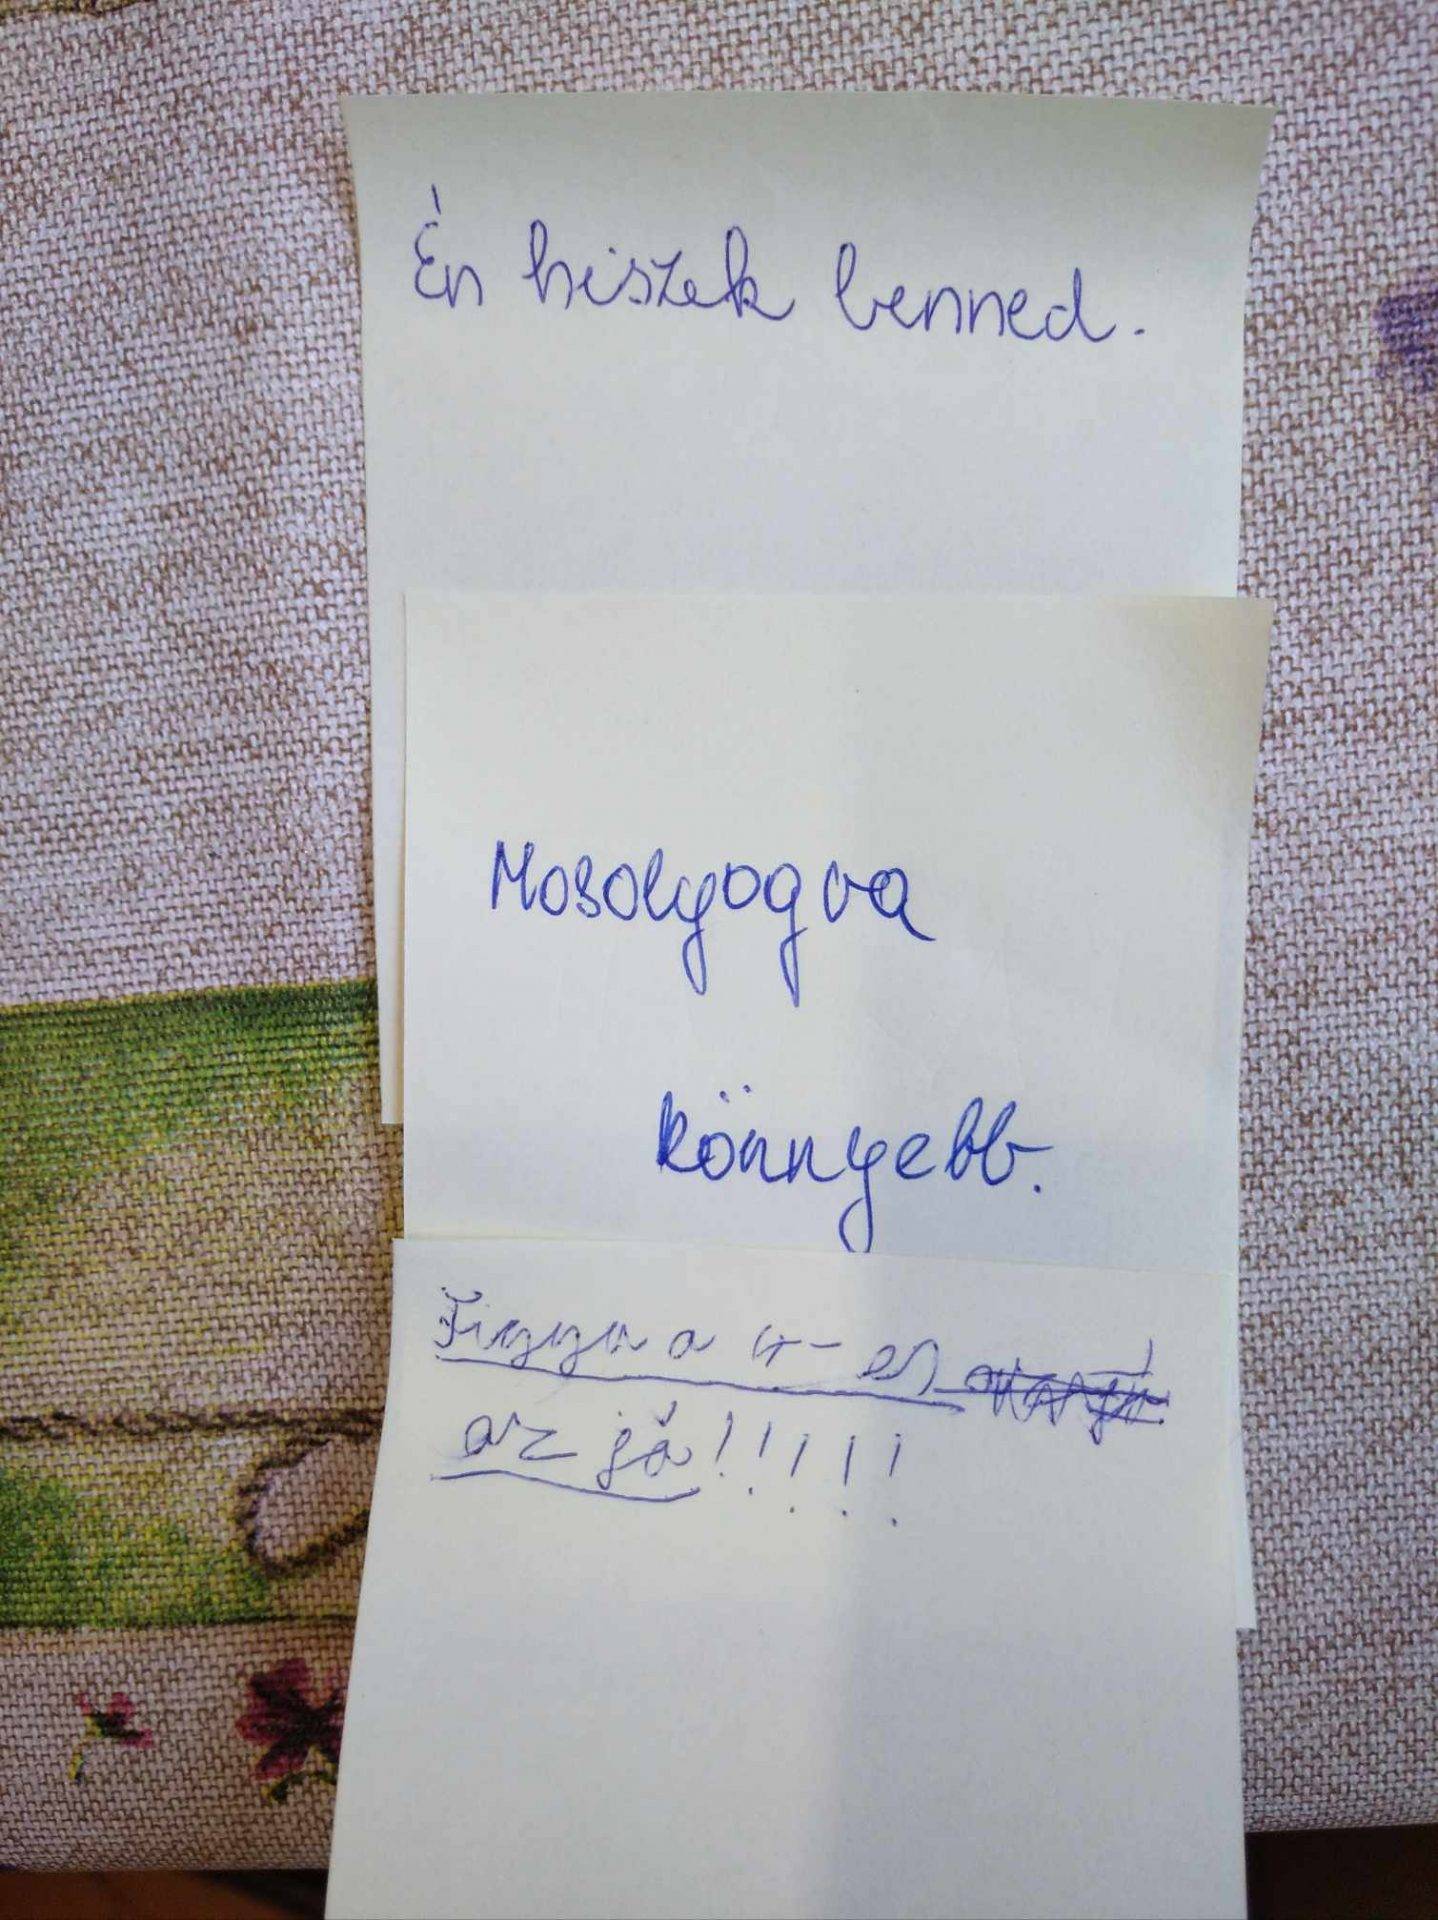 Én hiszek benned.
Mosolyogva
könnyebb.
a 4-es
az jó!!!!!